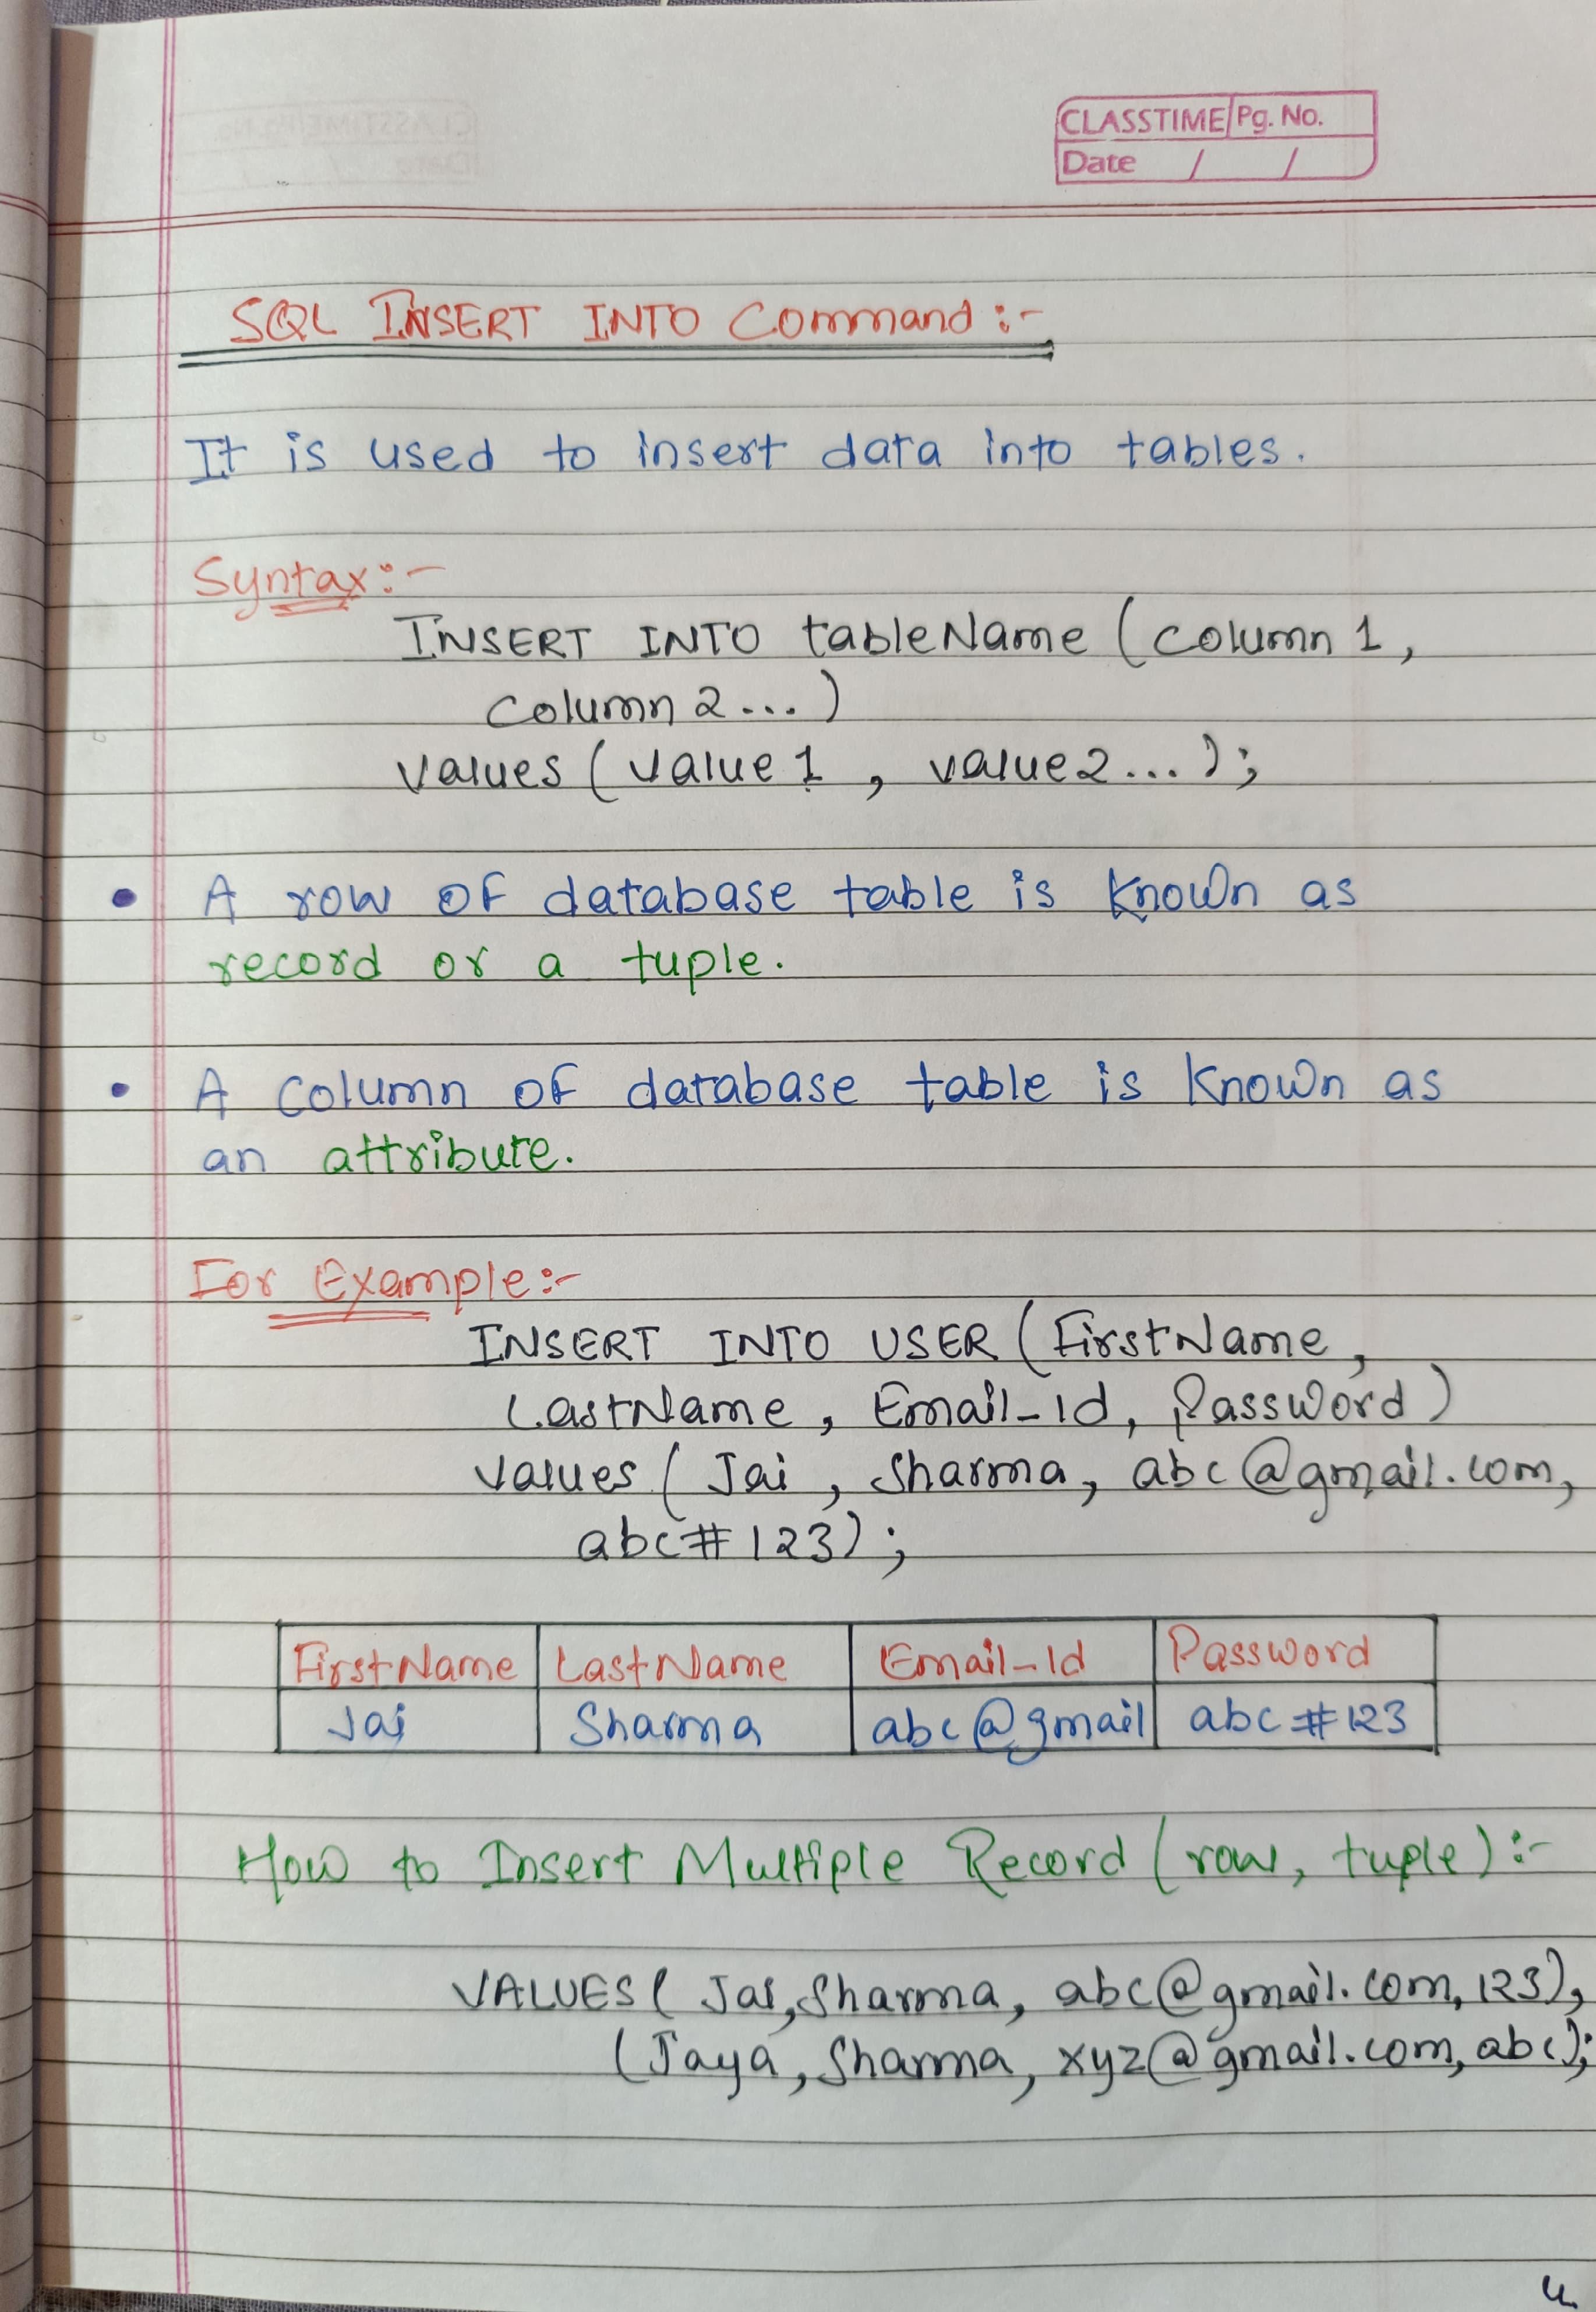 CLASSTIME Pg. No.
Date / /
SQL INSERT INTO Command :-
It is used to insert data into tables.
Syntax:-
INSERT INTO tableName (column 1,
column 2 ... )
values ( value 1 , value 2 ... );
• A row of database table is known as
record or a tuple.
• A column of database table is known as
an attribute.
For Example:-
INSERT INTO USER (FirstName,
LastName, Email-Id, Password)
values ( Jai, Sharma, abc@gmail.com,
abc#123);
FirstName LastName Email-Id Password
Jai Sharma abc@gmail abc#123
How to Insert Multiple Record (row, tuple):-
VALUES ( Jai, Sharma, abc@gmail.com, 123),
(Jaya, Sharma, xyz@gmail.com, abc);